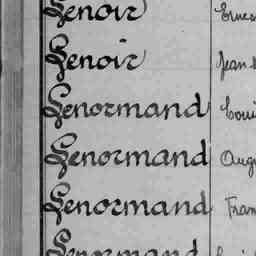 Lenoir Ernes
Lenoir Jean
Lenormand Loui
Lenormand Augu
Lenormand Fran
Lenormand Loui